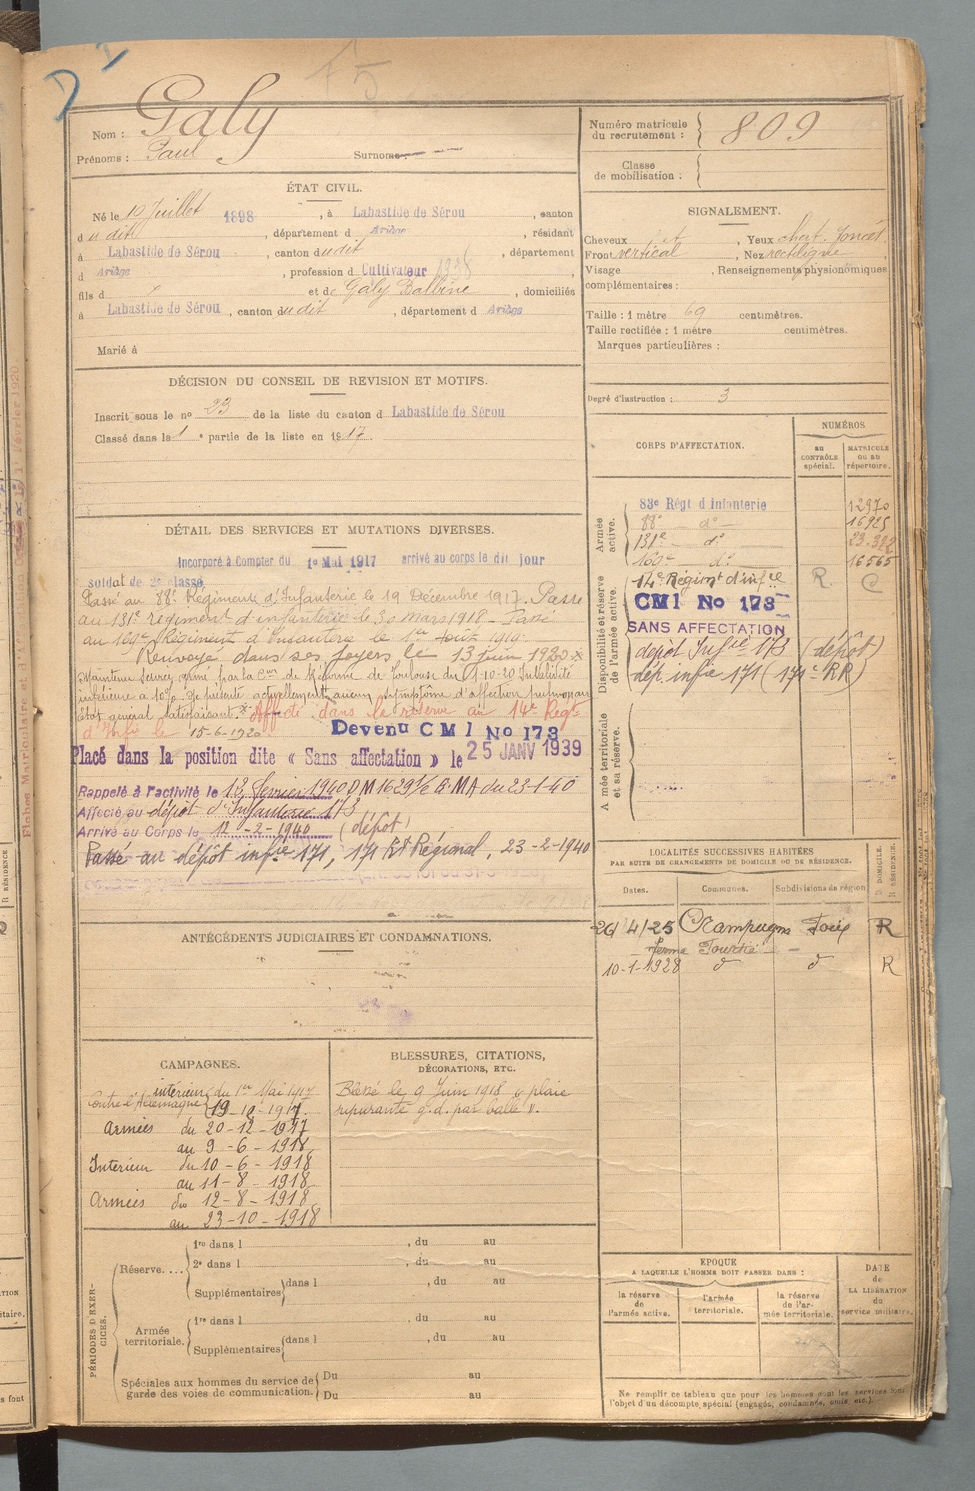 Nom : Galy
Prénoms : Paul Surnoms :
Numéro matricule du recrutement : 809
Classe de mobilisation :
ÉTAT CIVIL.
Né le 10 Juillet 1898, à Labastide de Sérou, canton
dudit, département d Ariège, résidant
à Labastide de Sérou, canton dudit, département
d Ariège, profession d Cultivateur
fils d et de Galy Balbine, domiciliés
à Labastide de Sérou, canton dudit, département d Ariège
Marié à
SIGNALEMENT.
Cheveux , Yeux chat. foncés
Front vertical, Nez rectiligne
Visage , Renseignements physionomiques
complémentaires :
Taille : 1 mètre 69 centimètres.
Taille rectifiée : 1 mètre centimètres.
Marques particulières :
Degré d'instruction : 3
DÉCISION DU CONSEIL DE REVISION ET MOTIFS.
Inscrit sous le no 23 de la liste du canton d Labastide de Sérou
Classé dans la 1e partie de la liste en 1917.
CORPS D'AFFECTATION.
NUMÉROS
AU CONTRÔLE spécial.
MATRICULE OU AU répertoire.
Armée active.
83e Régt d'infanterie 12970
88e do 16925
131e do 23.322
169e do 16565
Disponibilité et réserve de l'armée active.
14e Régimt d'infie R. C
CMI No 173
SANS AFFECTATION
depot Infie 173 (dépôt)
dép. infie 171 (171e RR)
Armée territoriale et sa réserve.
DÉTAIL DES SERVICES ET MUTATIONS DIVERSES.
Incorporé à Compter du 1er Mai 1917 arrivé au corps le dit jour
soldat de 2e classe
Passé au 88e Régiment d'Infanterie le 19 Décembre 1917. Passé
au 131e régiment d'infanterie le 30 mars 1918 - Passé
au 169e Régiment d'Infanterie le 1er Août 1919.
Renvoyé dans ses foyers le 13 juin 1920 x
Maintenu service armé par la Con de Réforme de Toulouse du 1-10-20 Invalidité
inférieure à 10%. Ne présente actuellement aucun symptôme d'affection pulmonaire
État général satisfaisant. x Affecté dans la réserve au 14e Régt
d'Infie le 15-6-1920 Devenu CMI No 173
Placé dans la position dite « Sans affectation » le 25 JANV 1939
Rappelé à l'activité le 12 février 1940 DM 1629 MA du 23-1-40
Affecté au dépôt d'Infanterie 173
Arrivé au Corps le 12-2-1940 (dépôt)
Passé au dépôt infie 171, 171 Rt Régional, 23-2-1940
LOCALITÉS SUCCESSIVES HABITÉES
PAR SUITE DE CHANGEMENTS DE DOMICILE OU DE RÉSIDENCE.
Dates. Communes. Subdivisions de région D. DOMICILE. R. RÉSIDENCE.
26/4/25 Crampagna Foix R
ferme Fourtié
10-1-1928 d d R
ANTÉCÉDENTS JUDICIAIRES ET CONDAMNATIONS.
CAMPAGNES.
Contre l'Allemagne intérieur du 1er Mai 1917
19-12-1917.
Armées du 20-12-1917
au 9-6-1918
Intérieur du 10-6-1918
au 11-8-1918
Armées du 12-8-1918
au 23-10-1918
BLESSURES, CITATIONS,
DÉCORATIONS, ETC.
Blessé le 9 Juin 1918 « plaie
g.d. par balle ».
PÉRIODES D'EXERCICES.
Réserve....
1re dans l , du au
2e dans l , du au
Supplémentaires dans l , du au
Armée territoriale.
1re dans l , du au
Supplémentaires dans l , du au
Spéciales aux hommes du service de garde des voies de communication.
Du au
Du au
EPOQUE
A LAQUELLE L'HOMME DOIT PASSER DANS :
la réserve de l'armée active.
l'armée territoriale.
la réserve de l'armée territoriale.
DATE de LA LIBÉRATION du service militaire.
Ne remplir ce tableau que pour les hommes dont les services font
l'objet d'un décompte spécial (engagés, condamnés, omis, etc.).